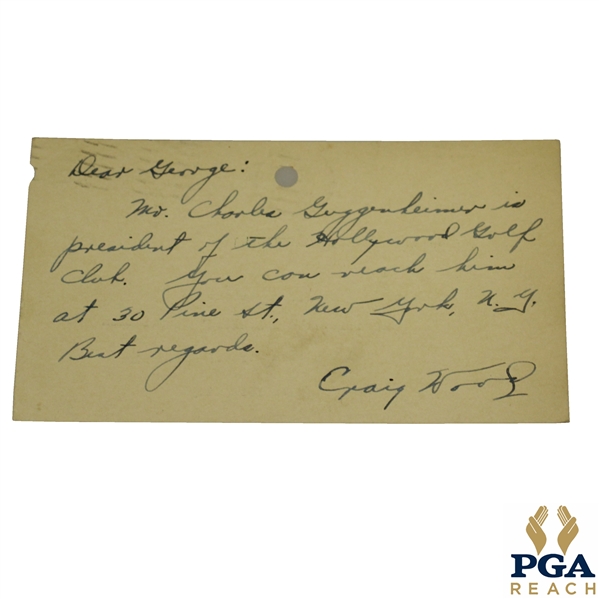 Dear George:
Mr. Charles Guggenheimer is
president of the Hollywood Golf
Club. You can reach him
at 30 Pine St., New York, N.Y.
Best regards.
Craig Wood
PGA
REACH